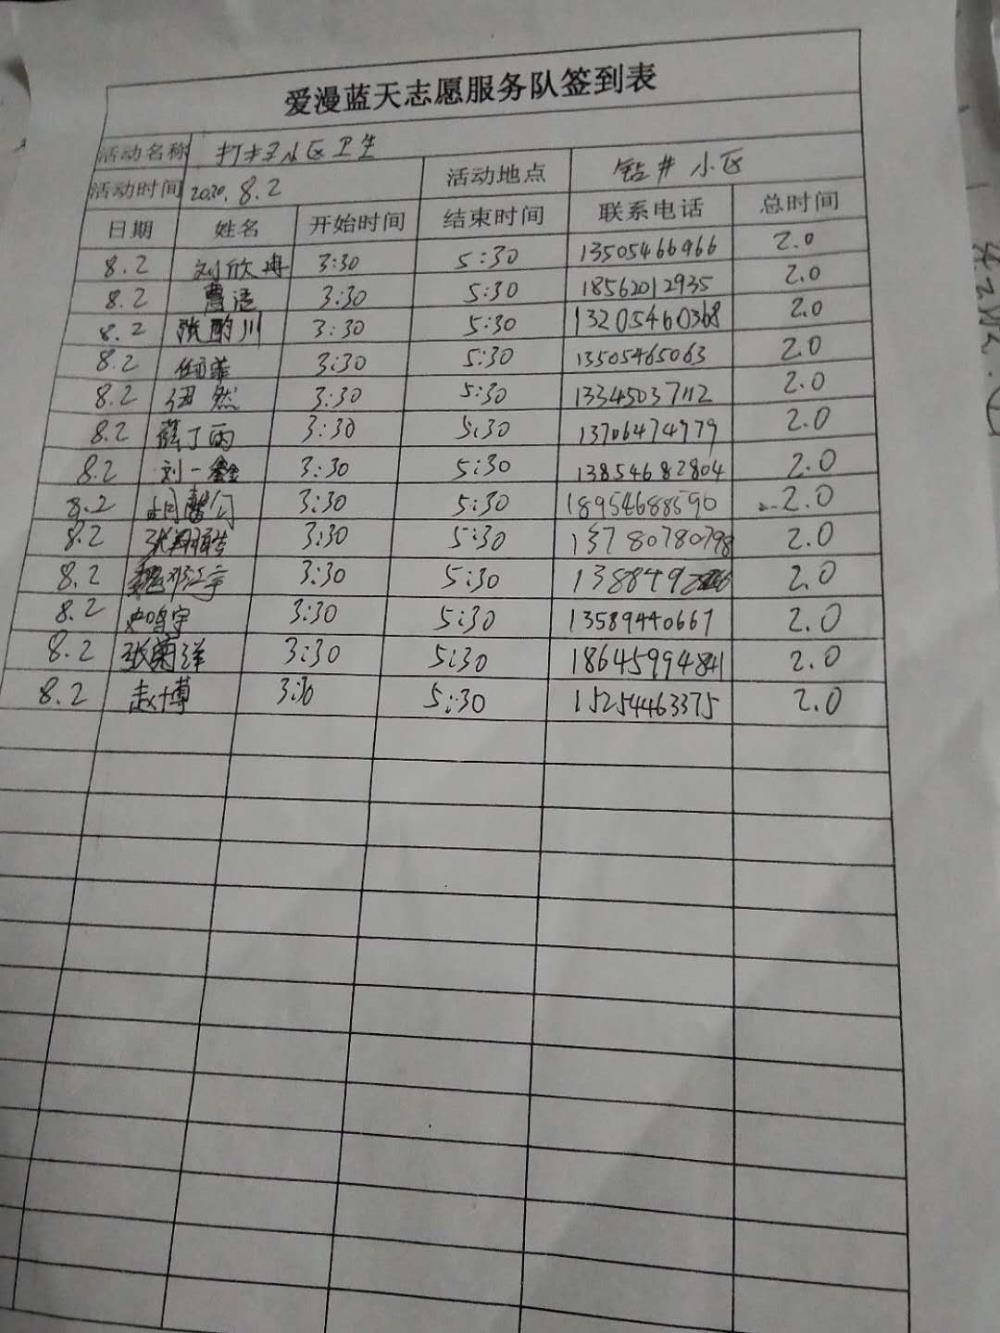 爱漫蓝天志愿服务队签到表
活动名称 打扫小区卫生
活动时间 2020.8.2 活动地点 钻井小区
日期 姓名 开始时间 结束时间 联系电话 总时间
8.2 刘欣冉 3:30 5:30 13505466966 2.0
8.2 曹洁 3:30 5:30 18562012935 2.0
8.2 张酌川 3:30 5:30 13205460368 2.0
8.2 3:30 5:30 13505465063 2.0
8.2 然 3:30 5:30 13345037112 2.0
8.2 薛丁雨 3:30 5:30 13706474979 2.0
8.2 刘一鑫 3:30 5:30 13854682804 2.0
8.2 胡馨匀 3:30 5:30 18954688590 2.0
8.2 张 3:30 5:30 13780780798 2.0
8.2 魏邓江宇 3:30 5:30 2.0
8.2 史鸣宇 3:30 5:30 13589440667 2.0
8.2 张菊洋 3:30 5:30 18645994841 2.0
8.2 赵博 3:30 5:30 15254463375 2.0